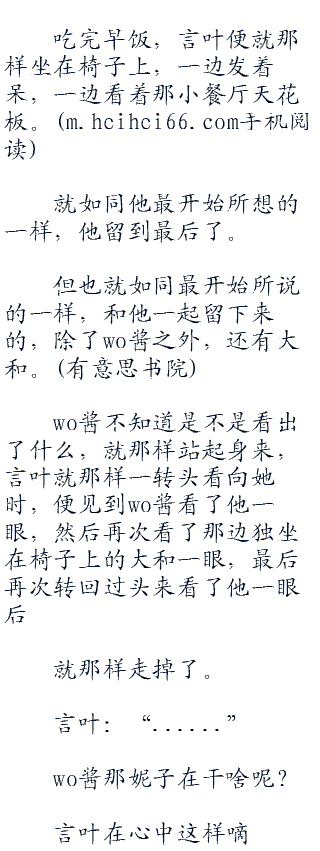 吃完早饭，言叶便就那
样坐在椅子上，一边发着
呆，一边看着那小餐厅天花
板。(m.hcihci66.com手机阅
读)
就如同他最开始所想的
一样，他留到最后了。
但也就如同最开始所说
的一样，和他一起留下来
的，除了wo酱之外，还有大
和。(有意思书院)
wo酱不知道是不是看出
了什么，就那样站起身来，
言叶就那样一转头看向她
时，便见到wo酱看了他一
眼，然后再次看了那边独坐
在椅子上的大和一眼，最后
再次转回过头来看了他一眼
后
就那样走掉了。
言叶：“......”
wo酱那妮子在干啥呢？
言叶在心中这样嘀